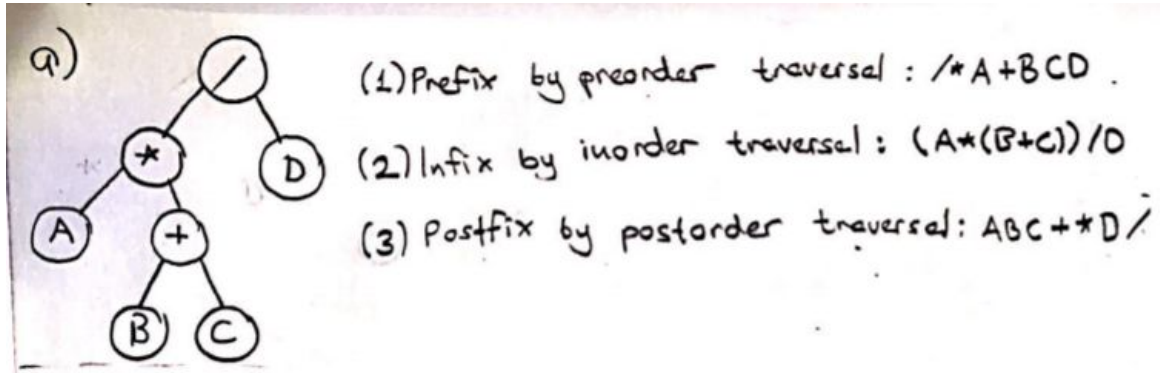 a)
/
(1) Prefix by preorder traversal : /*A+BCD .
*
D
(2) Infix by inorder traversal : (A*(B+C))/D
A
+
(3) Postfix by postorder traversal: ABC+*D/
B
C